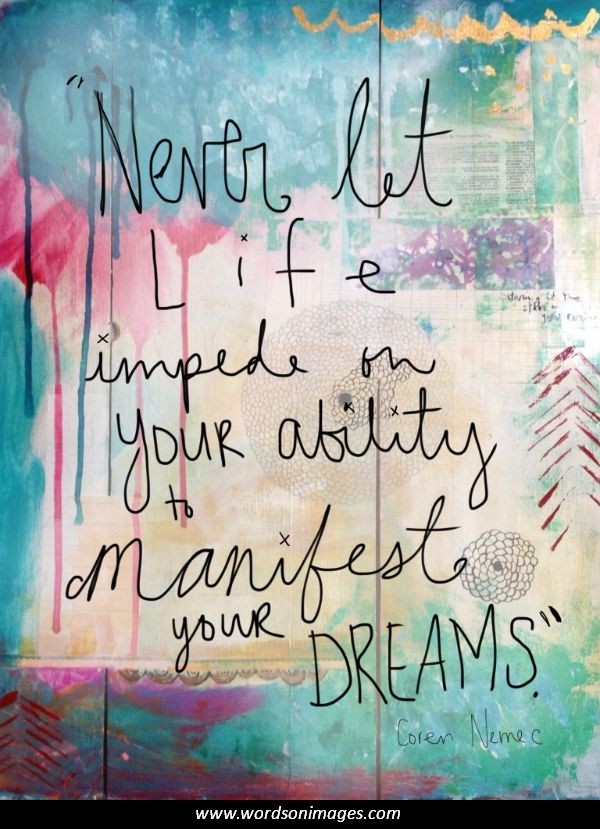 "Never let
Life
impede on
your ability
to
manifest
your
DREAMS."
Coren Nemec
www.wordsonimages.com